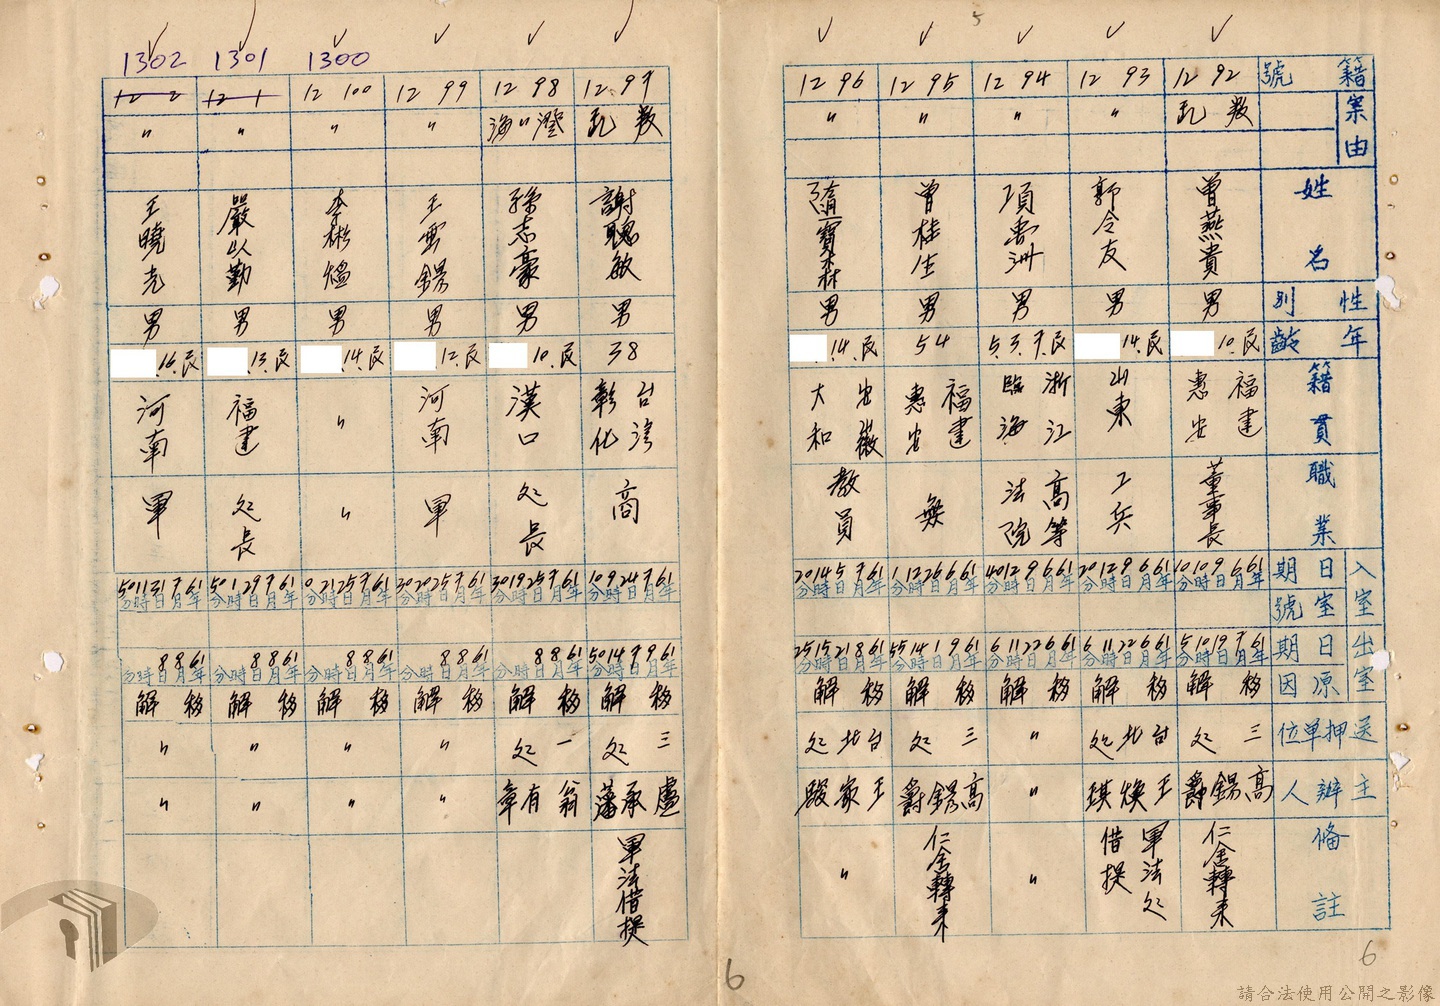 籍號
案由
姓名
性別
年齡
籍貫
職業
入室 日期
室號
出室 日期
原因
送押單位
主辦人
備註
12 92
叛 数
曾燕貴
男
民.10.
福建惠安
董事長
61年6月9日10時10分
61年7月19日10時5分
移解
三处
高錫爵
仁舍轉來
12 93
〃
郭令友
男
民.14.
山東
工兵
61年6月9日12時20分
61年6月22日11時6分
移解
台北处
王煥琪
軍法处借提
12 94
〃
項 洲
男
5.3.7.民
浙江臨海
高等法院
61年6月9日12時40分
61年6月22日11時6分
移解
〃
〃
〃
12 95
〃
曾桂生
男
54
福建惠安
無
61年6月26日12時1分
61年9月1日14時55分
移解
三处
高錫爵
仁舍轉來
12 96
〃
隋寶森
男
民.14.
安徽太和
教員
61年7月5日14時20分
61年8月21日15時25分
移解
台北处
王家駿
〃
12 97
謝聰敏
男
38
台灣彰化
商
61年7月24日9時10分
61年9月7日14時50分
移解
三处
盧承藩
軍法借提
12 98
澄〃海
孫志豪
男
民.10.
漢口
处長
61年7月25日19時30分
61年8月8日時分
移解
一处
翁有章
12 99
〃
王雲錫
男
民.12.
河南
軍
61年7月25日20時30分
61年8月8日時分
移解
〃
〃
1300
12 100
〃
李彬煴
男
民.14.
〃
〃
61年7月25日21時0分
61年8月8日時分
移解
〃
〃
1301
12 1
〃
嚴以勤
男
民.13.
福建
处長
61年7月29日1時50分
61年8月8日時分
移解
〃
〃
1302
12 2
〃
王曉光
男
民.16.
河南
軍
61年7月31日11時50分
61年8月8日時分
移解
〃
〃
5
6
6
請合法使用公開之影像